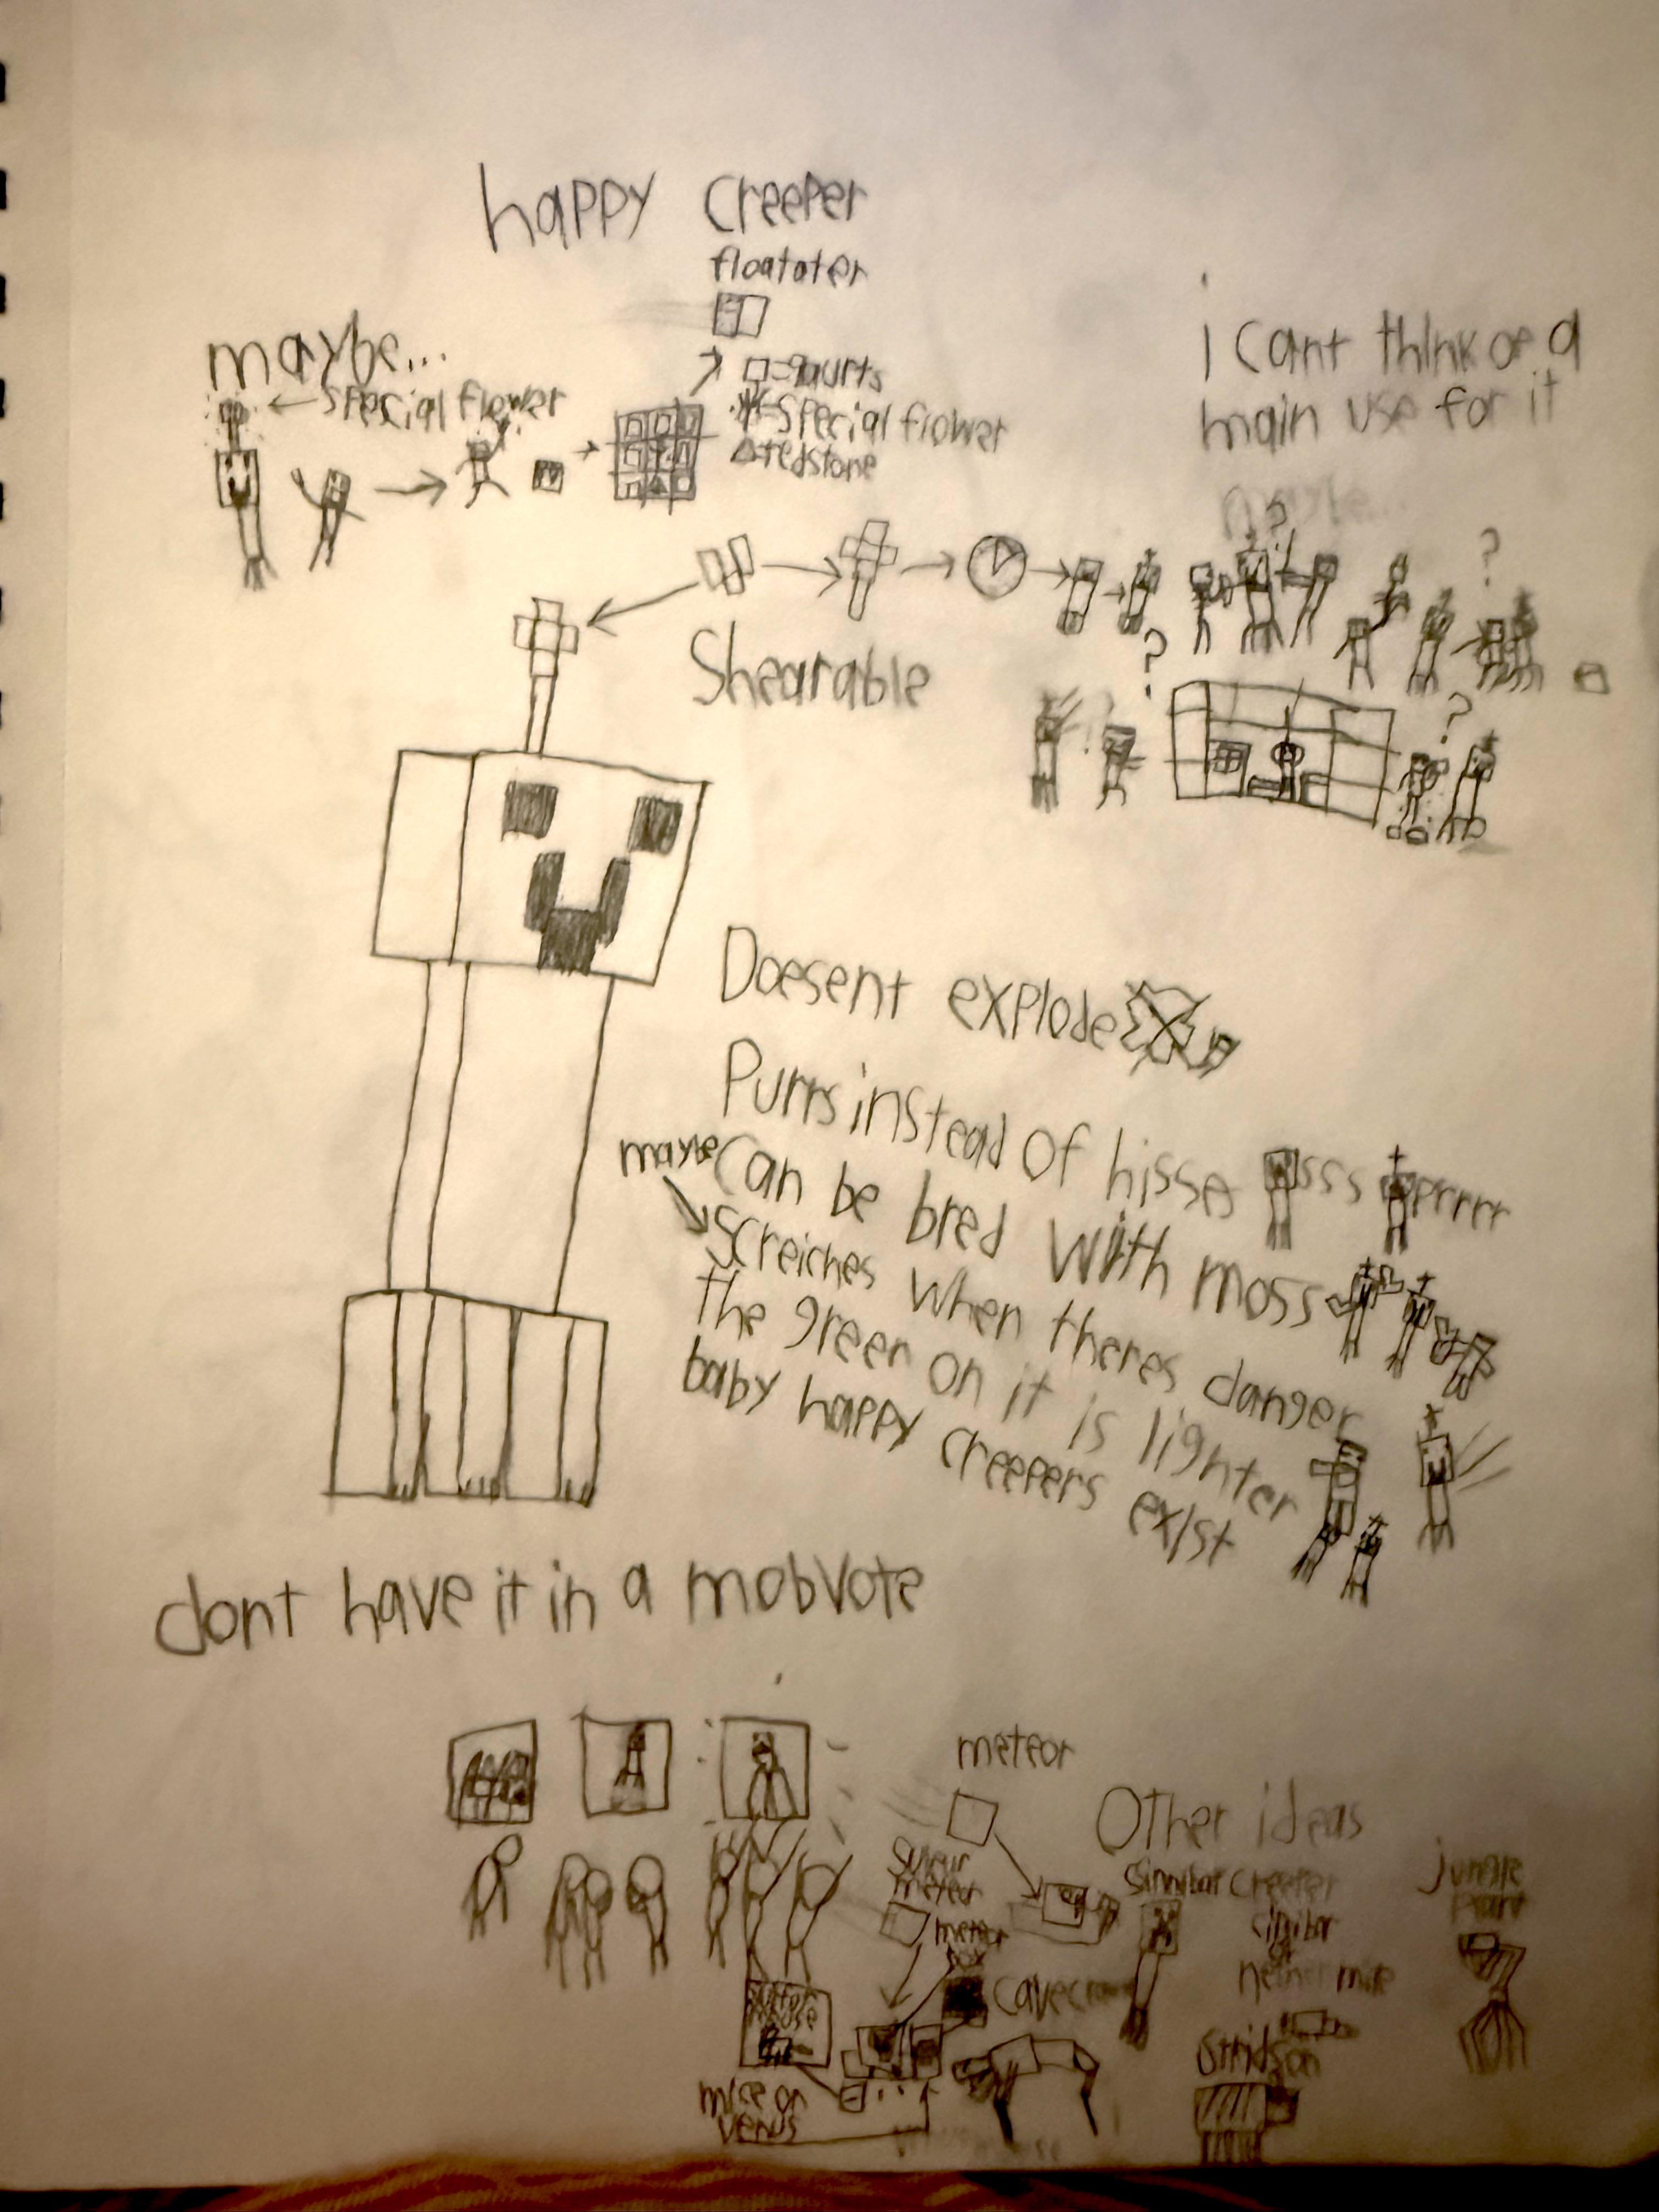 happy creeper
floatater
maybe...
special flower
□=qaurts
=special flower
△=redstone
i cant think of a
main use for it
maybe...
?
?
Shearable
?
?
Doesent explode
Purrs instead of hisse
sss
prrrr
maybe
Can be bred with moss
Screiches when theres danger
the green on it is lighter
baby happy creepers exist
dont have it in a mobvote
meteor
Other ideas
meteor
meteor
Sinnibar creeper
jungle
mite
mice on
venus